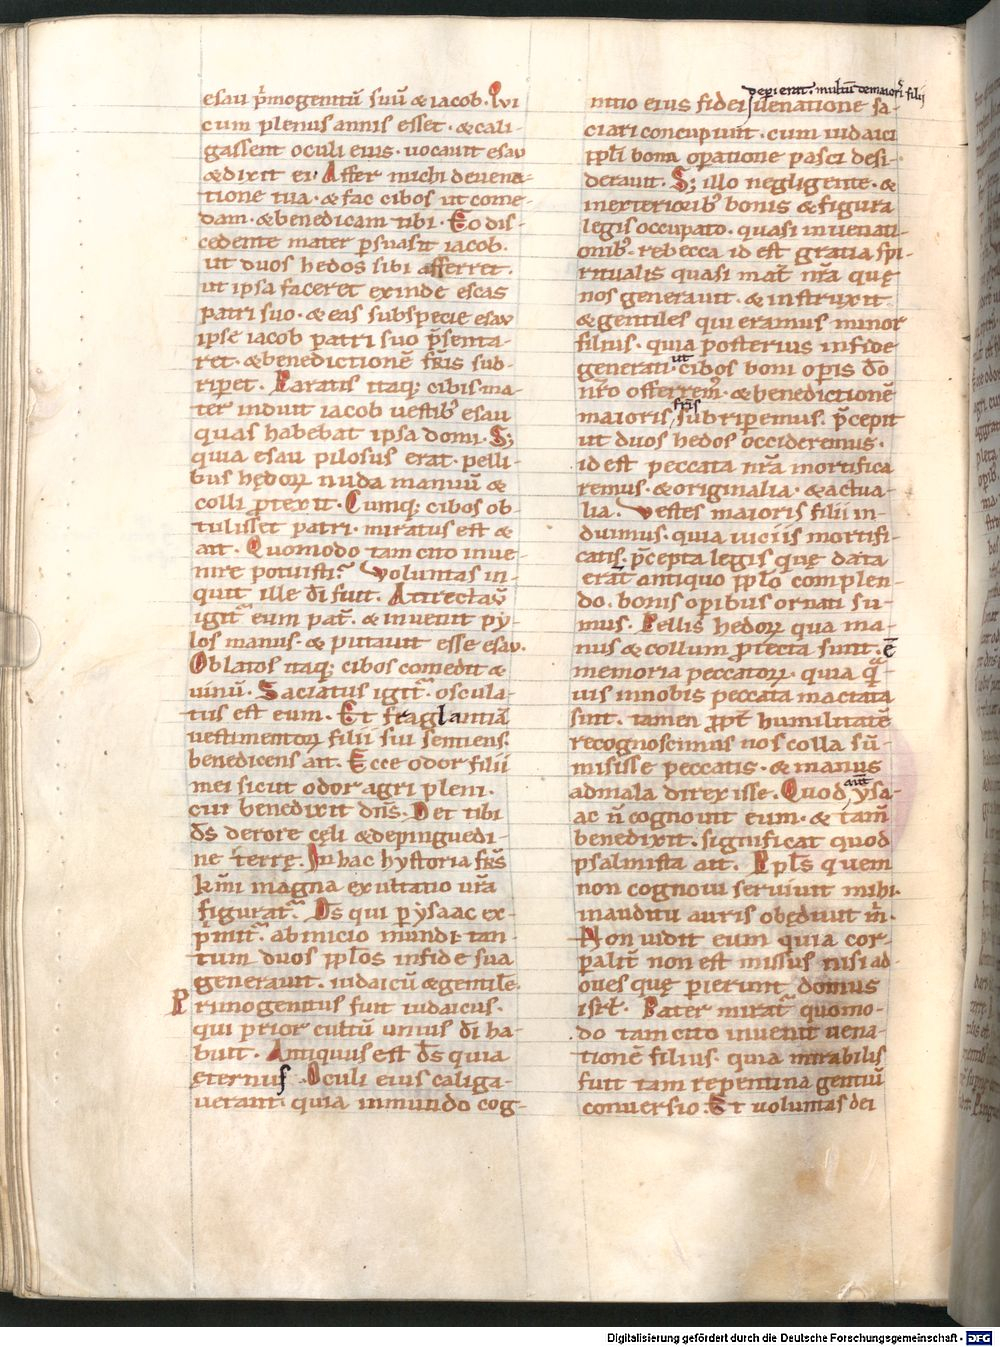 esau p̄mogenitū suū & iacob. Qui
cum plenus annis esset. & cali-
gassent oculi eius. uocauit esau
& dixit ei. Affer michi deuena-
tione tua. & fac cibos ut come-
dam. & benedicam tibi. Eo dis-
cedente mater p̱suasit iacob.
ut duos hedos sibi afferret.
ut ipsa faceret exinde escas
patri suo. & eas subspecie esau
ipse iacob patri suo p̄senta-
ret. & benedictionē fr̄is sub-
riperet. Paratis itaq; cibis ma-
ter induit iacob uestib; esau
quas habebat ipsa domi. S;
quia esau pilosus erat. pelli-
bus hędoꝝ nuda manuū &
colli ꝓtexit. Cumq; cibos ob-
tulisset patri. miratus est &
ait. Quomodo tam cito inue-
nire potuisti? Voluntas in-
quit ille dī fuit. Attrectau̅
igit̃ eum pat̃. & inuenit py-
los manus. & putauit esse esau.
Oblatos itaq; cibos comedit &
uinū. Saciatus igit̃ oscula-
tus est eum. Et fraglantiā
uestimentoꝝ filii sui sentiens.
benedicens ait. Ecce odor filii
mei sicut odor agri pleni.
cui benedixit dn̄s. Det tibi
d̄s derore cęli & depinguedi-
ne terrę. In hac hystoria fr̄s
k̄mi magna exultatio ur̄a
figurat̃. D̄s qui p̱ ysaac ex-
p̄mit̃. abinicio mundi tan-
tum duos ppl̄os infide sua
generauit. iudaicū & gentilē.
Primogenitus fuit iudaicus.
qui prior cultū unius dī ha-
buit. Antiquus est d̄s quia
eternus. Oculi eius caliga-
uerant quia inmundo cog-
deperierat. multū demaioris filii
nitio eius fidei uenatione sa-
ciari concupiuit. cum iudaici
ppl̄i bona oꝑatione pasci desi-
derauit. S; illo negligente. &
inexteriorib; bonis & figura
legis occupato. quasi inuenati-
onib;. rebecca id est gratia spi-
ritualis quasi mat̃ nr̄a quę
nos generauit. & instruxit
& gentiles qui eramus minor
filius. quia posterius infide
generati ut cibos boni opis dō
nr̄o offerrem᷒. & benedictionē
maioris fr̄is subriperemus. p̄cepit
ut duos hedos occideremus.
id est peccata nr̄a mortifica-
remus. & originalia. & actua-
lia. Vestes maioris filii in-
duimus. quia uiciis mortifi-
catis. p̄cepta legis quę data
erāt antiquo ppl̄o complen-
do. bonis oꝑibus ornati su-
mus. Pellis hedoꝝ qua ma-
nus & collum ꝓtecta sunt. ē
memoria peccatoꝝ. quia quā-
uis innobis peccata mactata
sint. tamen ꝓpt̃ humilitatē
recognoscimus nos colla sū-
misisse peccatis. & manus
admala direxisse. Quod aut̄ ysa-
ac n̄ cognouit eum. & tam̄
benedixit. significat quod
psalmista ait. Ppl̄s quem
non cognoui seruiuit mihi.
inauditu auris obędiuit m̄.
Non uidit eum quia cor-
ꝑalit̃ non est missus nisi ad
oues quę perierunt domus
isr̄l. Pater mirat̃ quomo-
do tam cito inuenit uena-
tionē filius. quia mirabilis
fuit tam repentina gentiū
conuersio. Et uoluntas dei
Digitalisierung gefördert durch die Deutsche Forschungsgemeinschaft - DFG